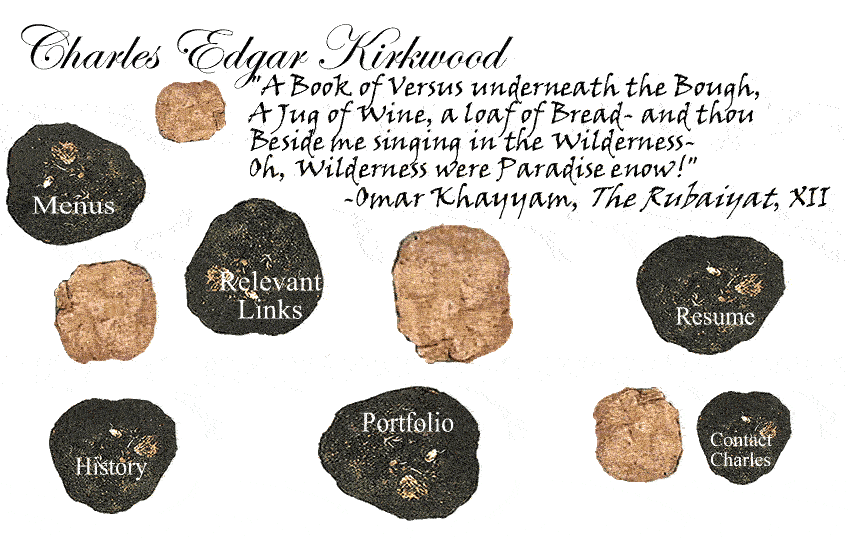 Charles Edgar Kirkwood
"A Book of Versus underneath the Bough,
A Jug of Wine, a loaf of Bread- and thou
Beside me singing in the Wilderness-
Oh, Wilderness were Paradise enow!"
-Omar Khayyam, The Rubaiyat, XII
Menus
Relevant
Links
Resume
Portfolio
History
Contact
Charles